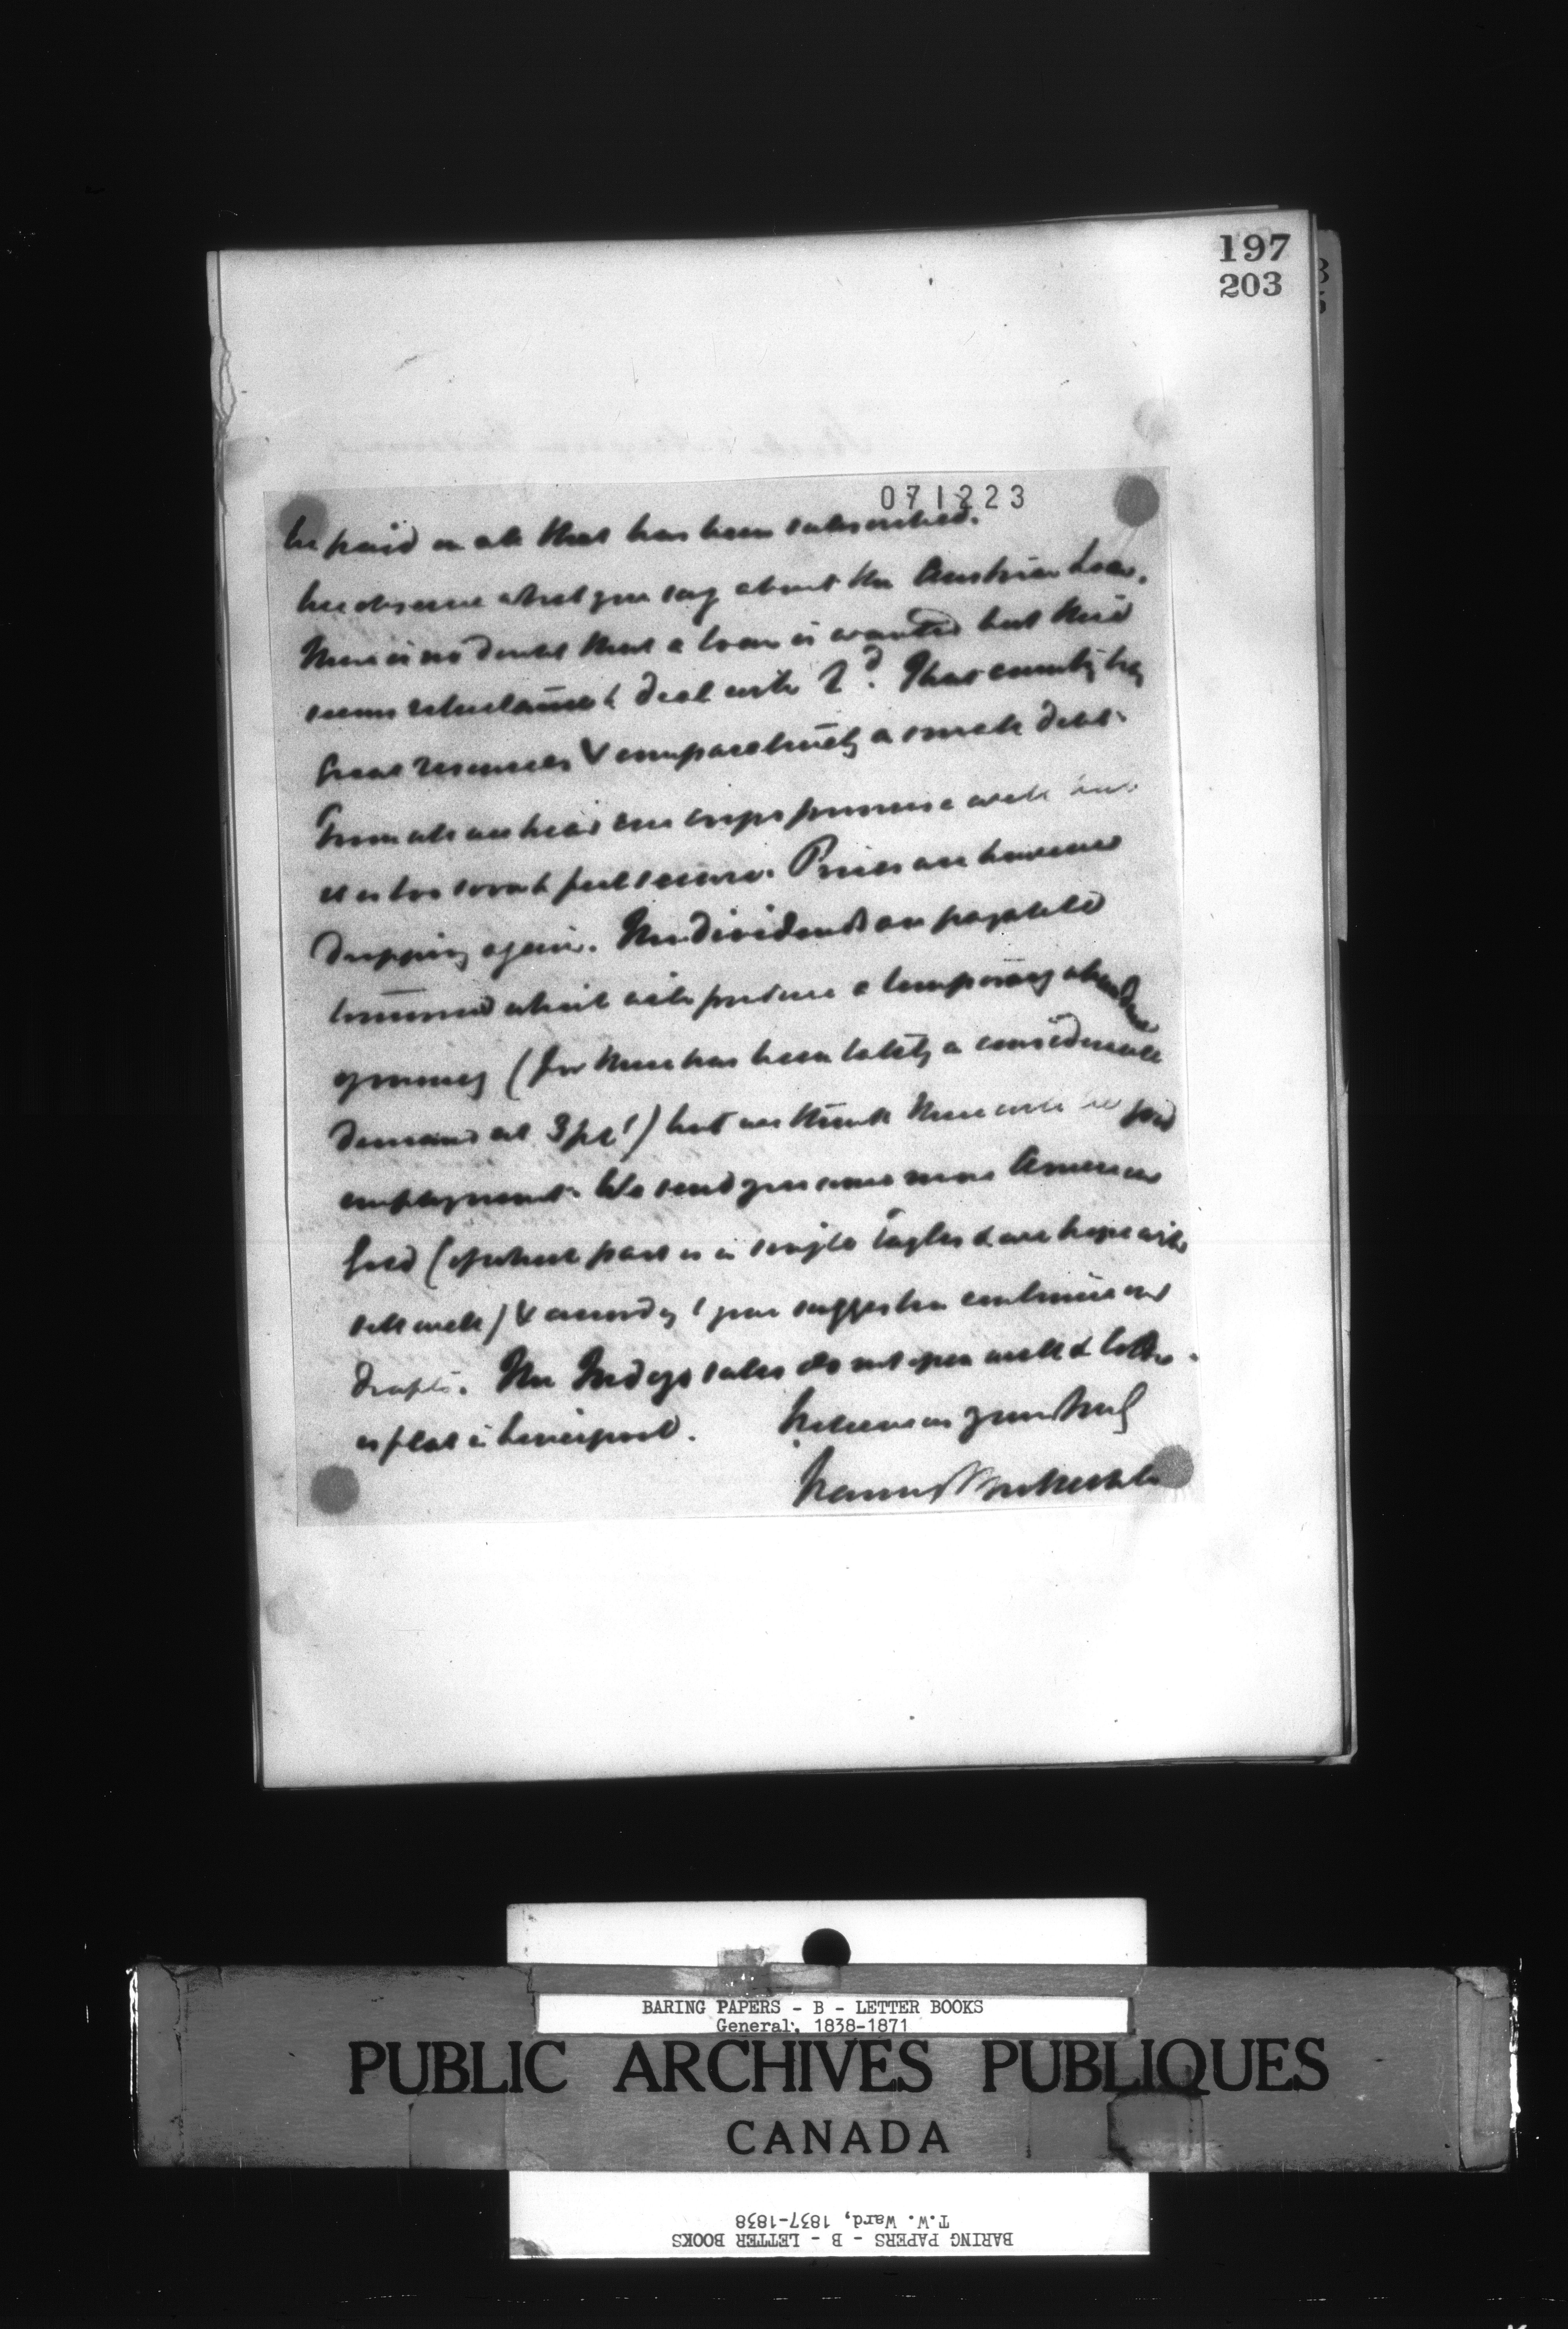 197
203
071223
be paid on all that has been subscribed.
We observe what you say about the Austrian Loan.
There is no doubt that a loan is wanted but
seems reluctance to deal with That country has
great resources & comparatively a small debt.
From all we hear our crops promise well but
it is too soon to feel secure. Prices are however
dropping again. The dividends are payable
tomorrow which will produce a temporary abundance
of money (for there has been lately a considerable
demand at 3 pct) but we think there will be good
employment. We send you some more American
Gold (of which part is in single Eagles & we hope will
sell well) & according to your suggestion continue our
drafts. The Indigo sales do not open well & Cotton
is flat in Liverpool. We remain yours truly
BARING PAPERS - B - LETTER BOOKS
General, 1838-1871
PUBLIC ARCHIVES PUBLIQUES
CANADA
T.W. Ward, 1837-1838
BARING PAPERS - B - LETTER BOOKS